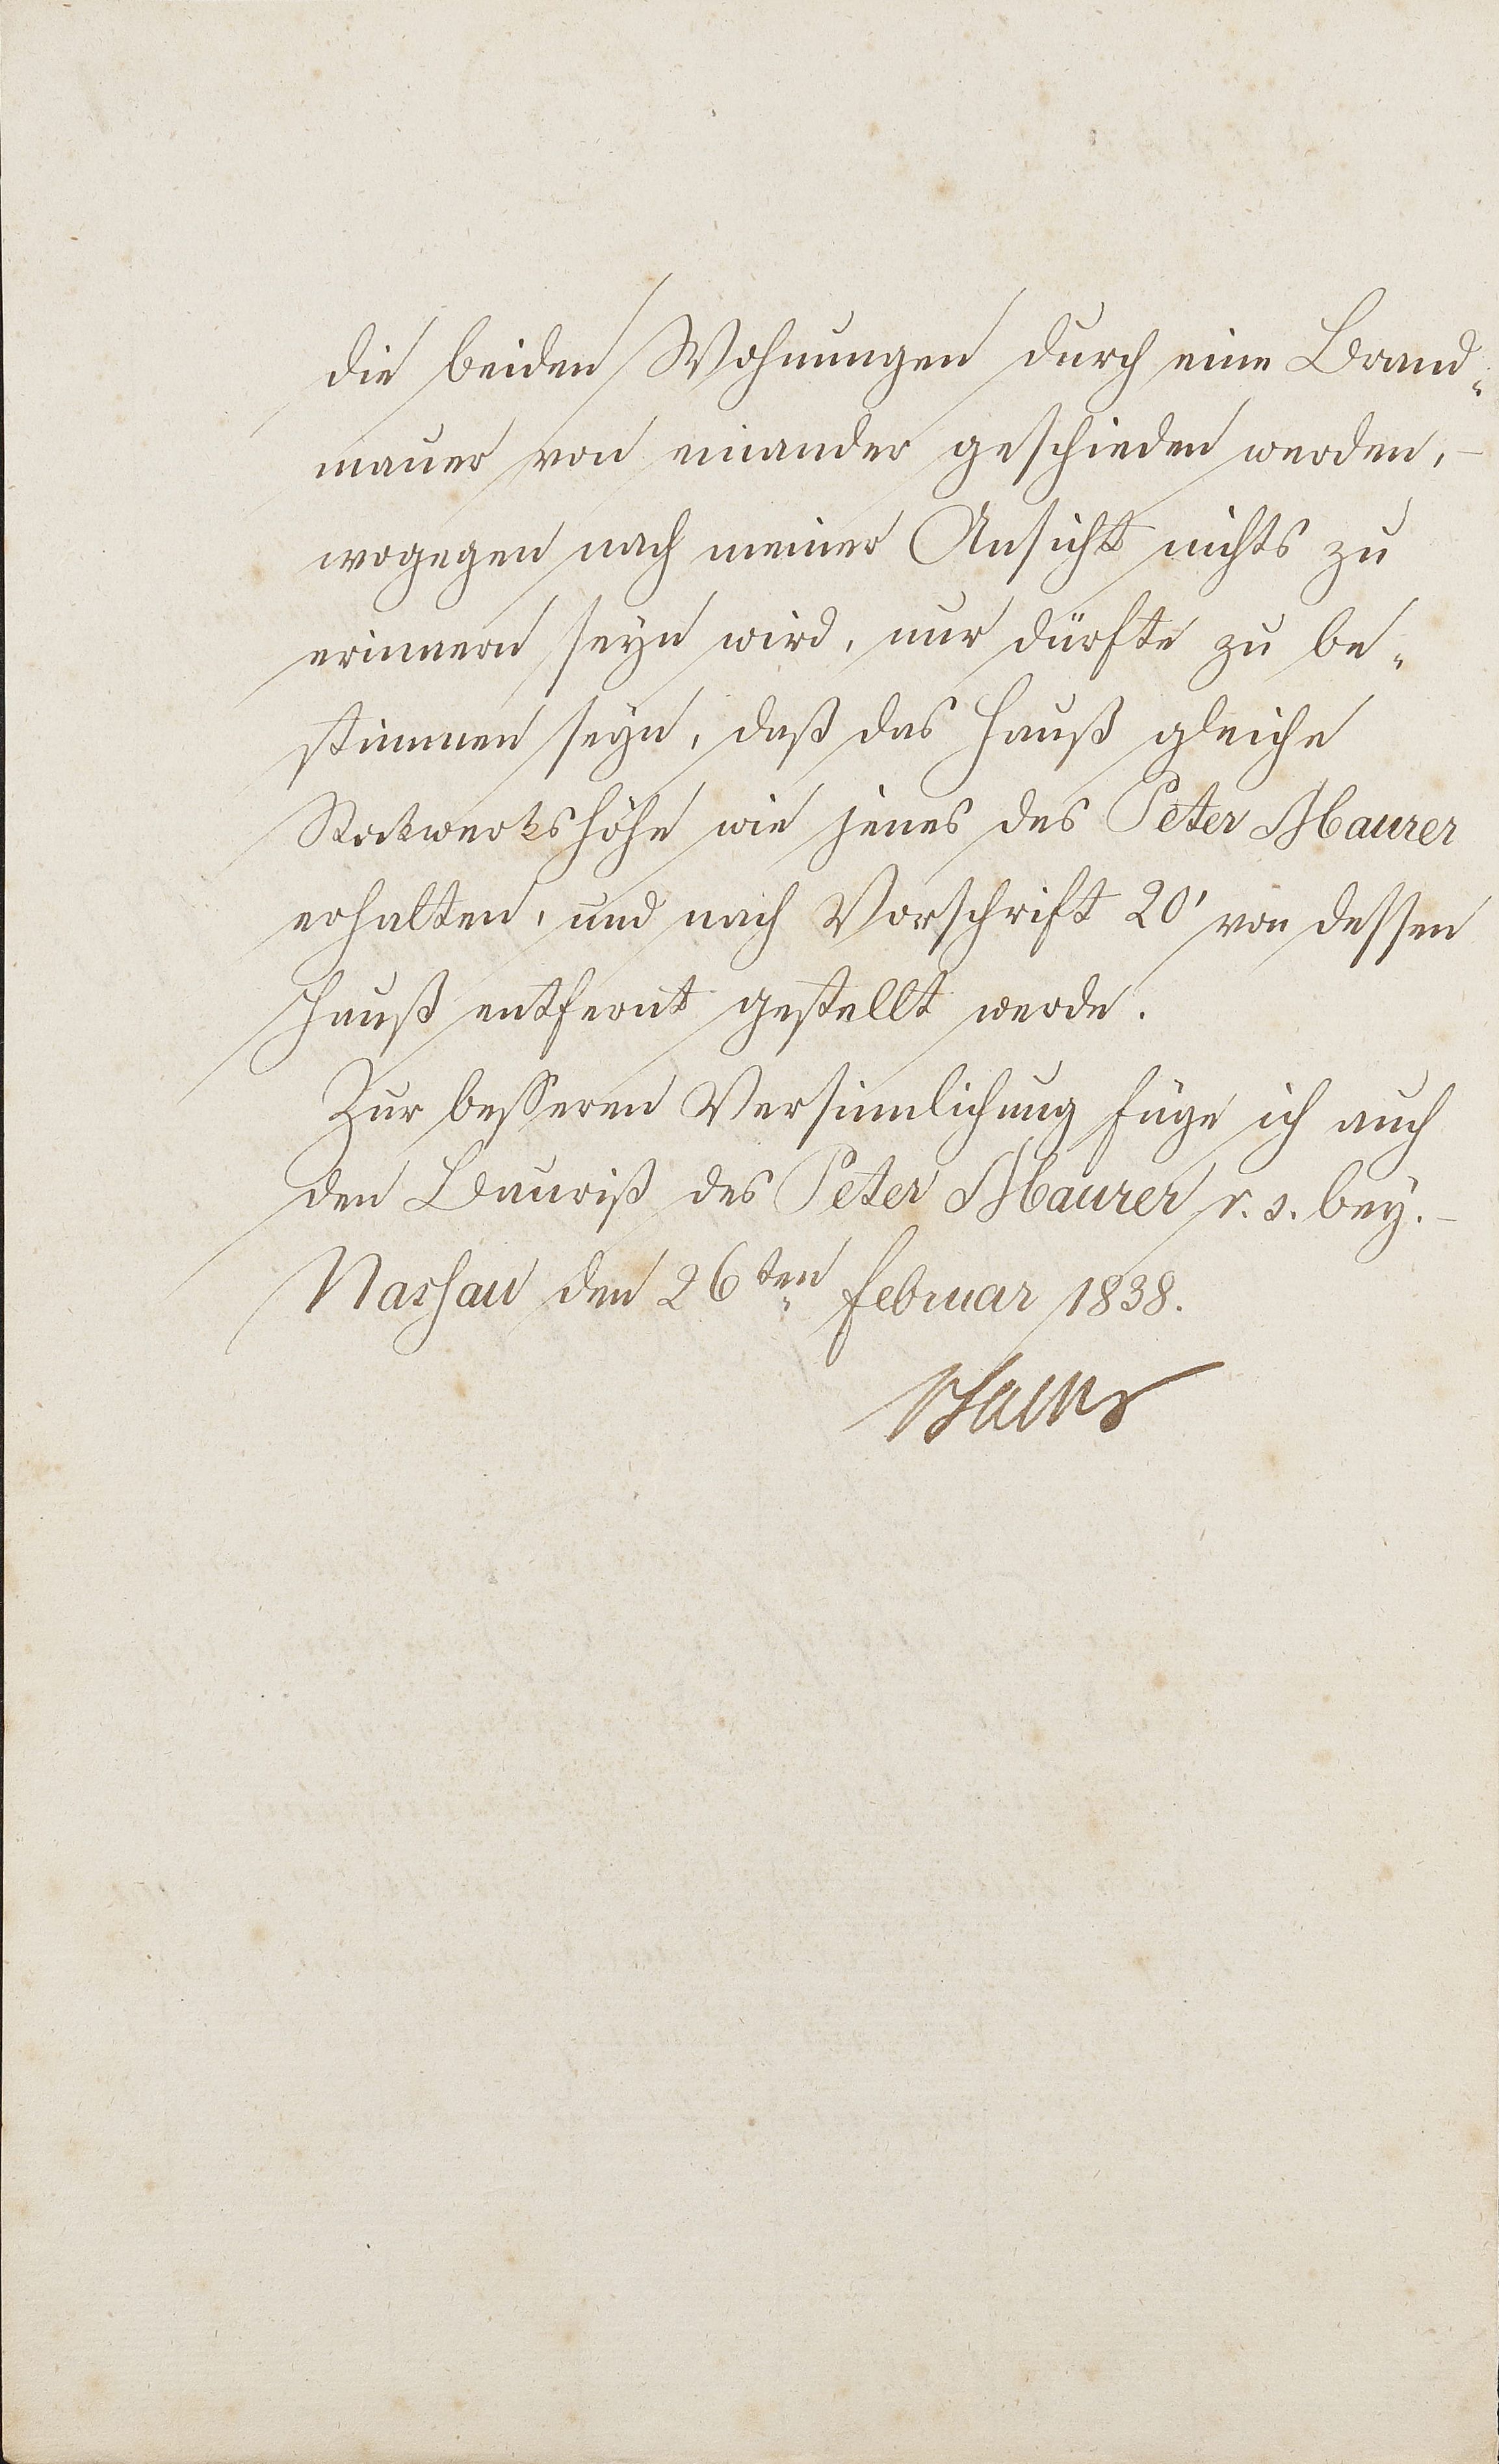 die beiden Wohnungen durch eine Brand-
mauer von einander geschieden werden,-
wogegen nach meiner Ansicht nichts zu
erinnern seyn wird, nur dürfte zu be-
stimmen seyn, daß das Hauß gleiche
Stockwerkshöhe wie jenes des Peter Maurer
erhalten, und nach Vorschrift 20' von dessen
Hauß entfernt gestellt werde.
Zur besseren Versinnlichung füge ich auch
den Bauriß des Peter Maurer r. s. bey.-
Nassau den 26ten Februar 1838.